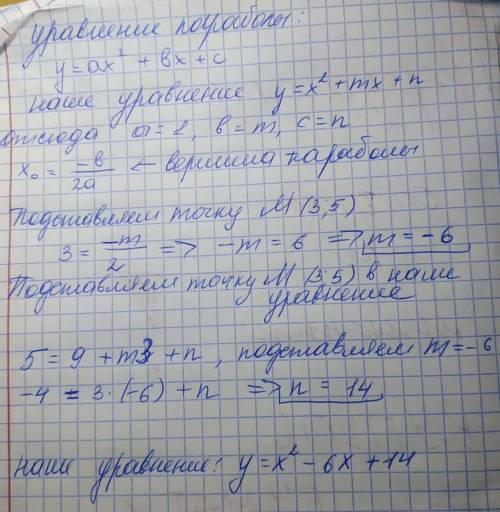 уравнение параболы:
y = ax² + bx + c
наше уравнение y = x² + mx + n
отсюда a = 1, b = m, c = n
x₀ = -b/2a ← вершина параболы
Подставляем точку M (3,5)
3 = -m/2 => -m = 6 => m = -6
Подставляем точку M (3;5) в наше
уравнение
5 = 9 + m3 + n, подставляем m = -6
-4 = 3·(-6) + n => n = 14
наше уравнение: y = x² - 6x + 14